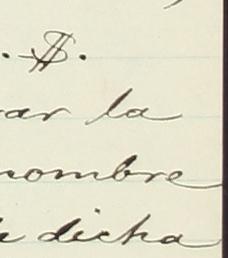 . S.
ar la
nombre
dicha